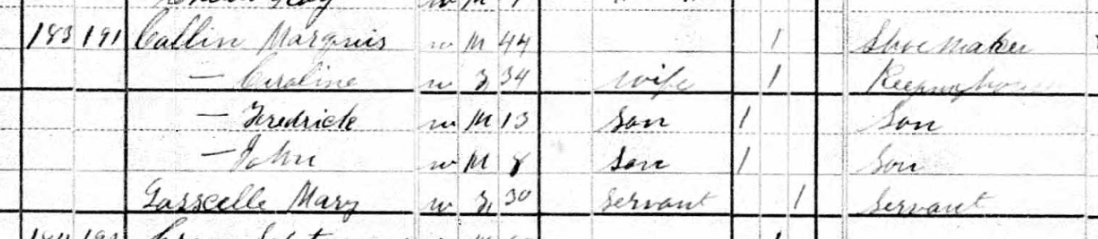 183 191 Callin Marquis w M 44 1 Shoe Maker
— Caroline w F 34 wife 1 Keeping house
— Fredrick w M 13 Son 1 Son
— John w M 8 Son 1 Son
Mary w F 30 Servant 1 Servant